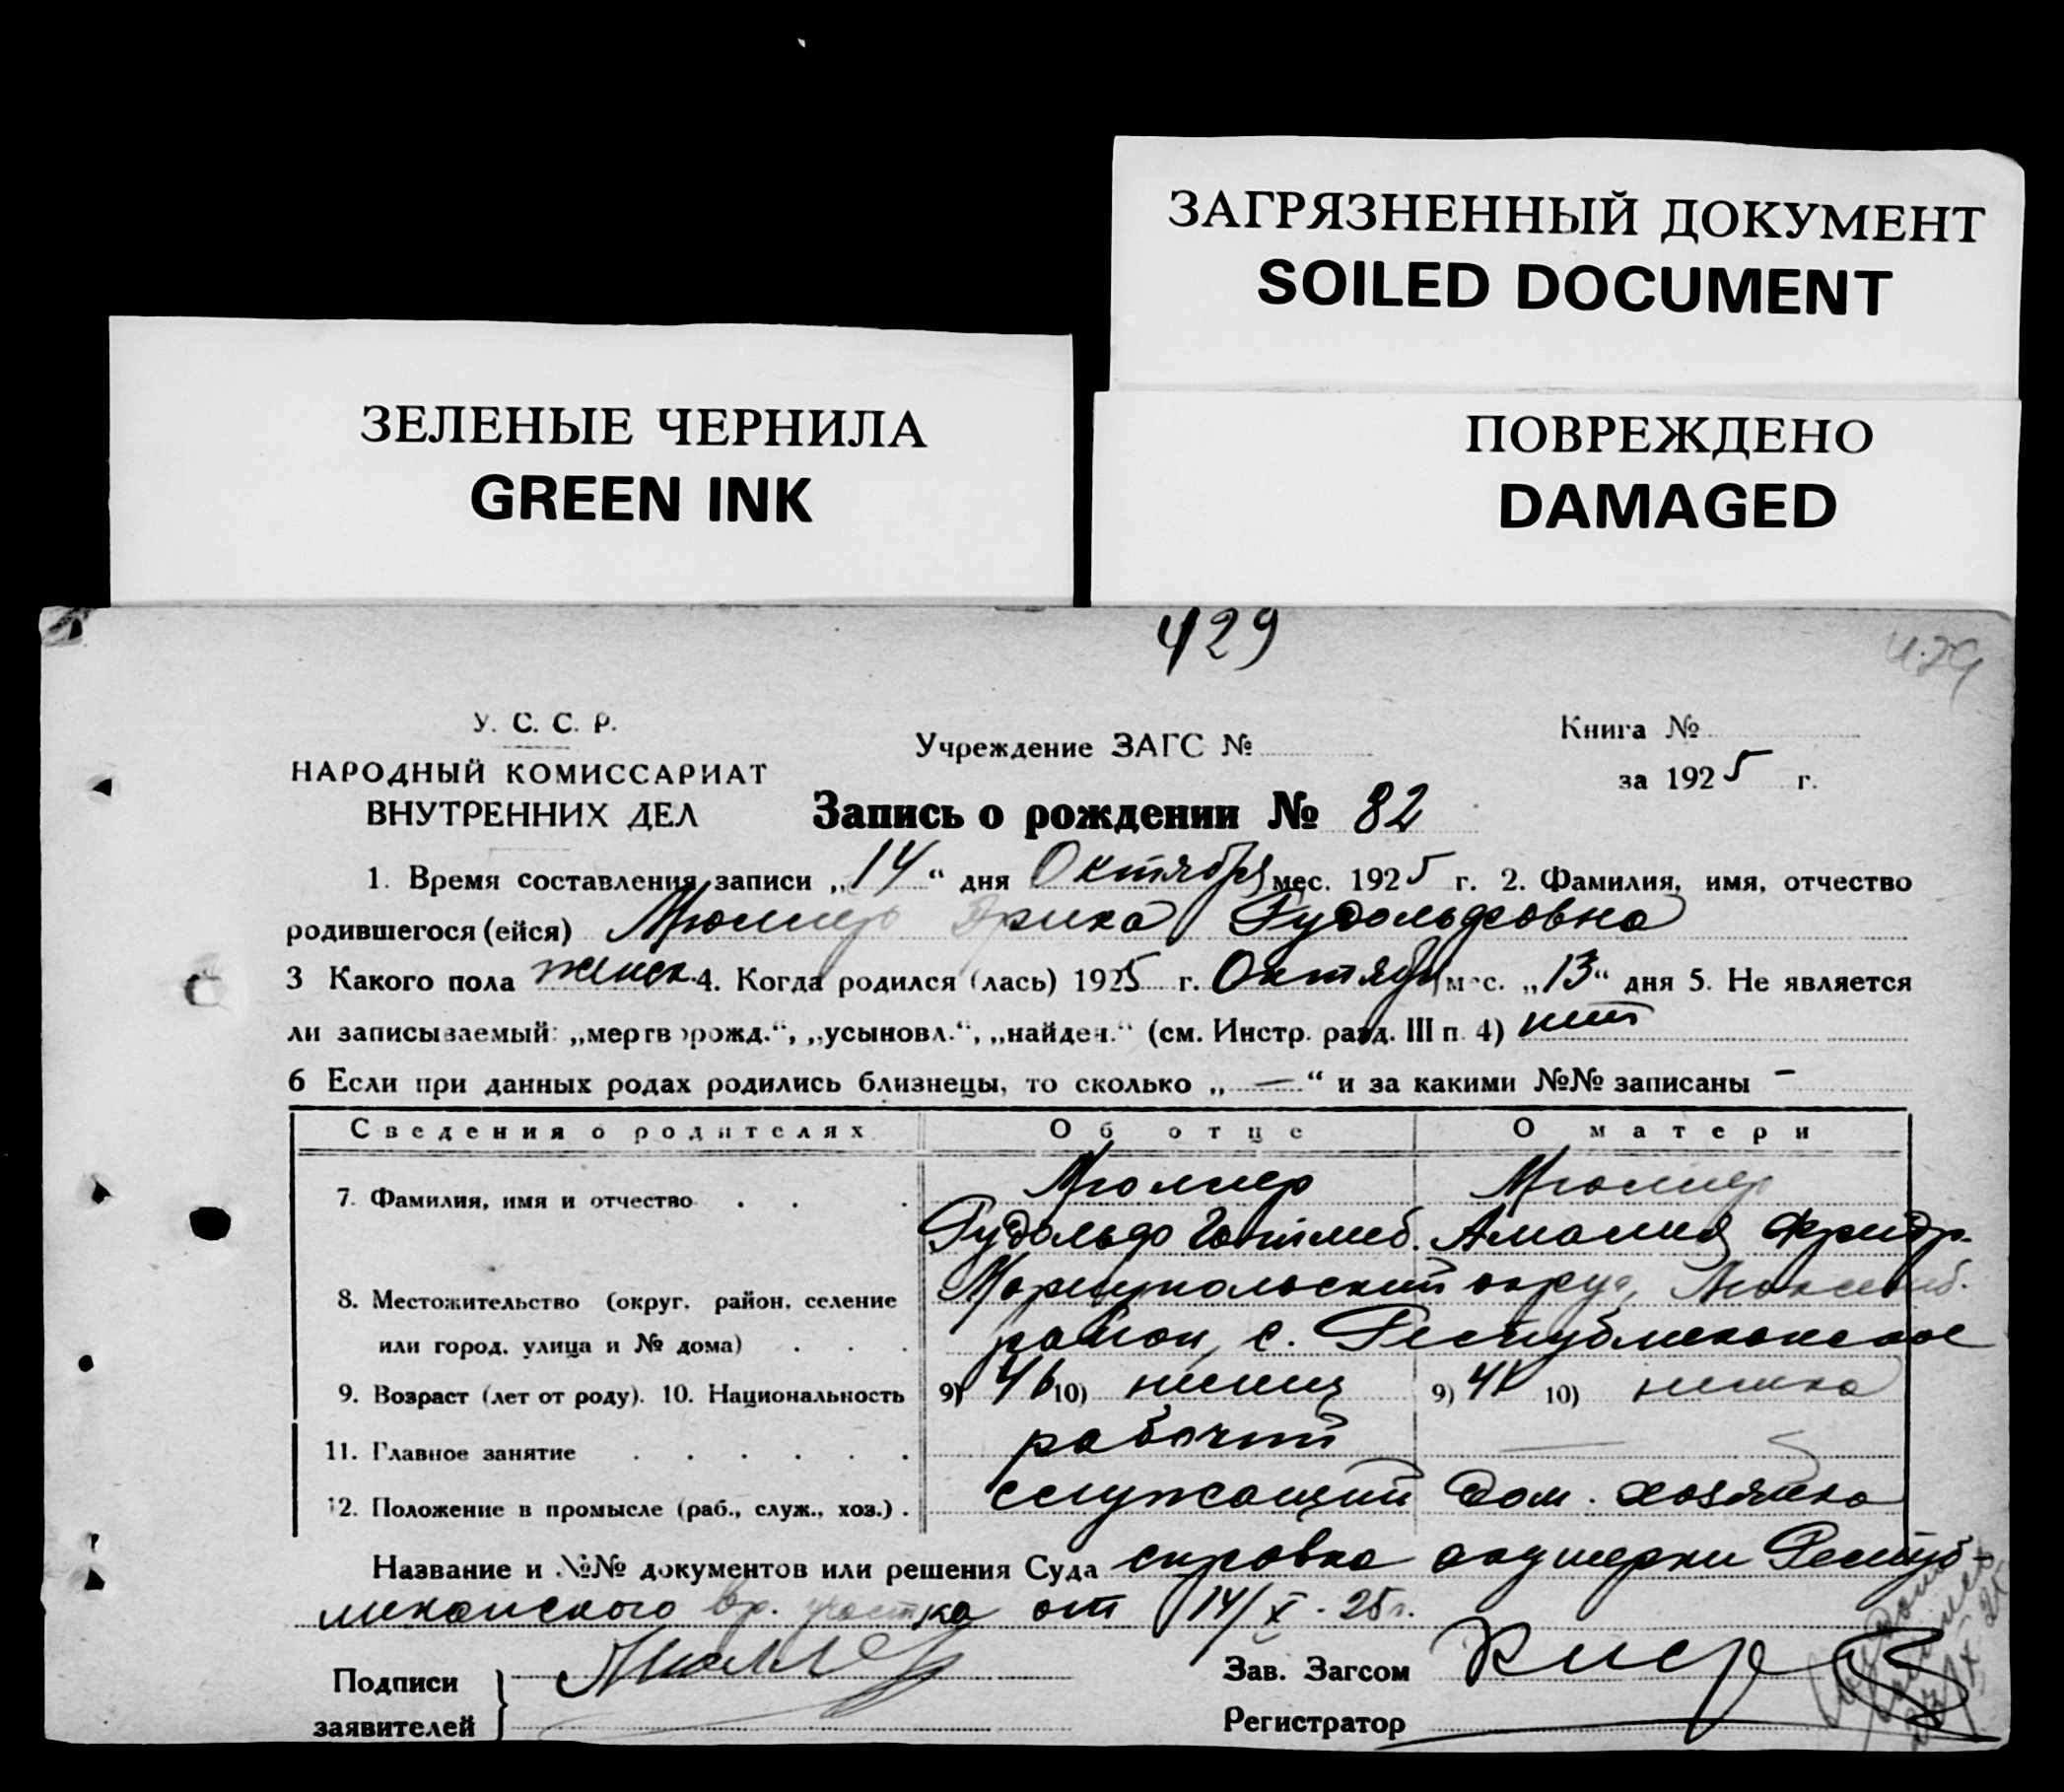 ЗАГРЯЗНЕННЫЙ ДОКУМЕНТ
SOILED DOCUMENT
ЗЕЛЕНЫЕ ЧЕРНИЛА
GREEN INK
ПОВРЕЖДЕНО
DAMAGED
429
429
У. С. С. Р.
НАРОДНЫЙ КОМИССАРИАТ
ВНУТРЕННИХ ДЕЛ
Учреждение ЗАГС №
Книга №
за 1925 г.
Запись о рождении № 82
1. Время составления записи „14“ дня Октября мес. 1925 г. 2. Фамилия, имя, отчество
родившегося (ейся) Мюллер Эрика Рудольфовна
3 Какого пола женск. 4. Когда родился (лась) 1925 г. Октября мес. „13“ дня 5. Не является
ли записываемый: „мертворожд.“, „усыновл.“, „найден.“ (см. Инстр. разд. III п. 4) нет
6 Если при данных родах родились близнецы, то сколько „—“ и за какими №№ записаны -
Сведения о родителях Об отце О матери
7. Фамилия, имя и отчество Мюллер Мюллер
Рудольф Готлиб. Амалия Фридр.
8. Местожительство (округ, район, селение Мариупольский округ,
или город, улица и № дома) район, с. Республиканское
9. Возраст (лет от роду). 10. Национальность 9) 46 10) немец 9) 41 10) немка
11. Главное занятие рабочий —
12. Положение в промысле (раб., служ., хоз.) служащий Дом. хозяйка
Название и №№ документов или решения Суда справка акушерки Респуб-
ликанского вр. участка от 14/X-25г.
Подписи
заявителей
Зав. Загсом
Регистратор